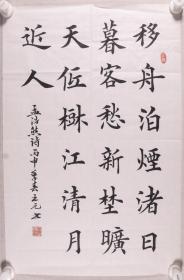 移舟泊煙渚日
暮客愁新埜曠
天低樹江清月
近人
孟浩然詩丙申